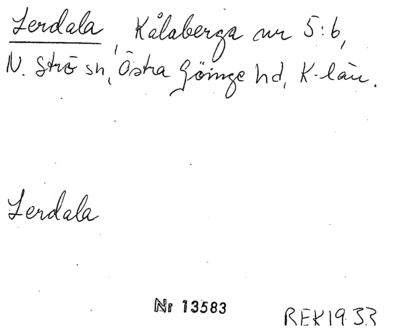 Lerdala, Kålaberga nr 5:6,
N. Strö sn, Östra Göinge hd, K-län.
Lerdala
Nr 13583
REK 1933